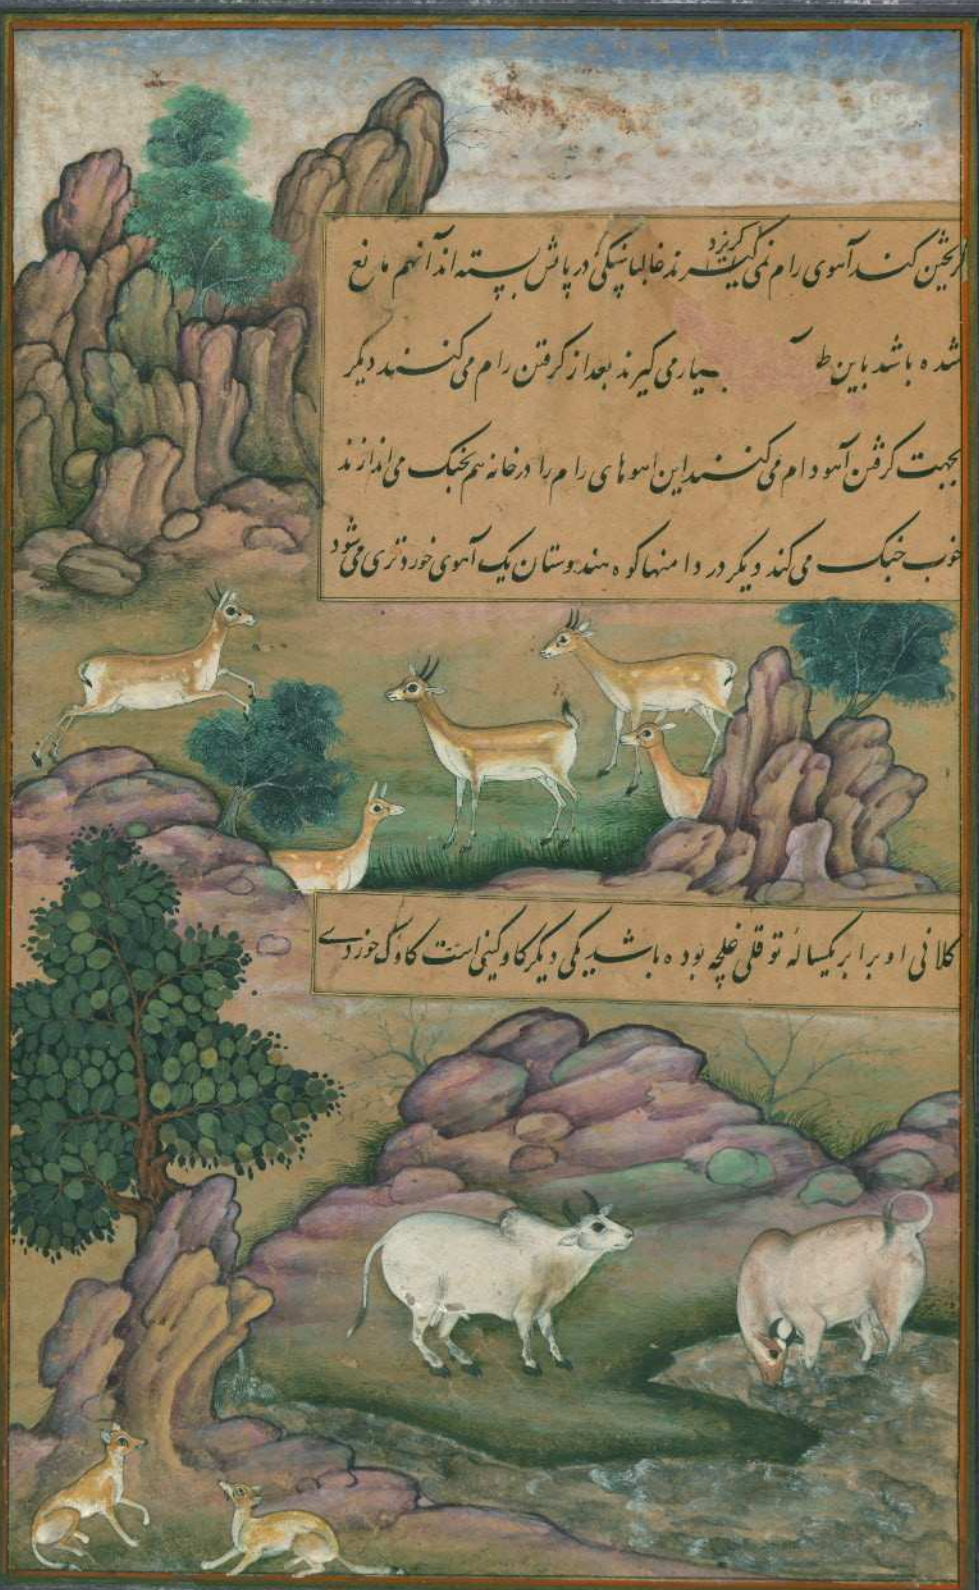 گریختن کند آهوی رام نمی‌گریزد گیرند غالبا سنگی در پایش بسته‌اند آنهم مانع
شده باشد باین ط بسیار می‌گیرند بعد از گرفتن رام می‌کنند دیگر
بجهت گرفتن آهو دام می‌کنند این اهوهای رام را در خانه هم بجنگ می‌اندازند
خوب جنگ می‌کند دیگر در دامنهاکوه هندوستان یک آهوی خوردتری می‌شود
کلانی او برابر یکساله توقلی غلجه بوده باشد یکی دیگر کاوکینی است کاوک خوردے